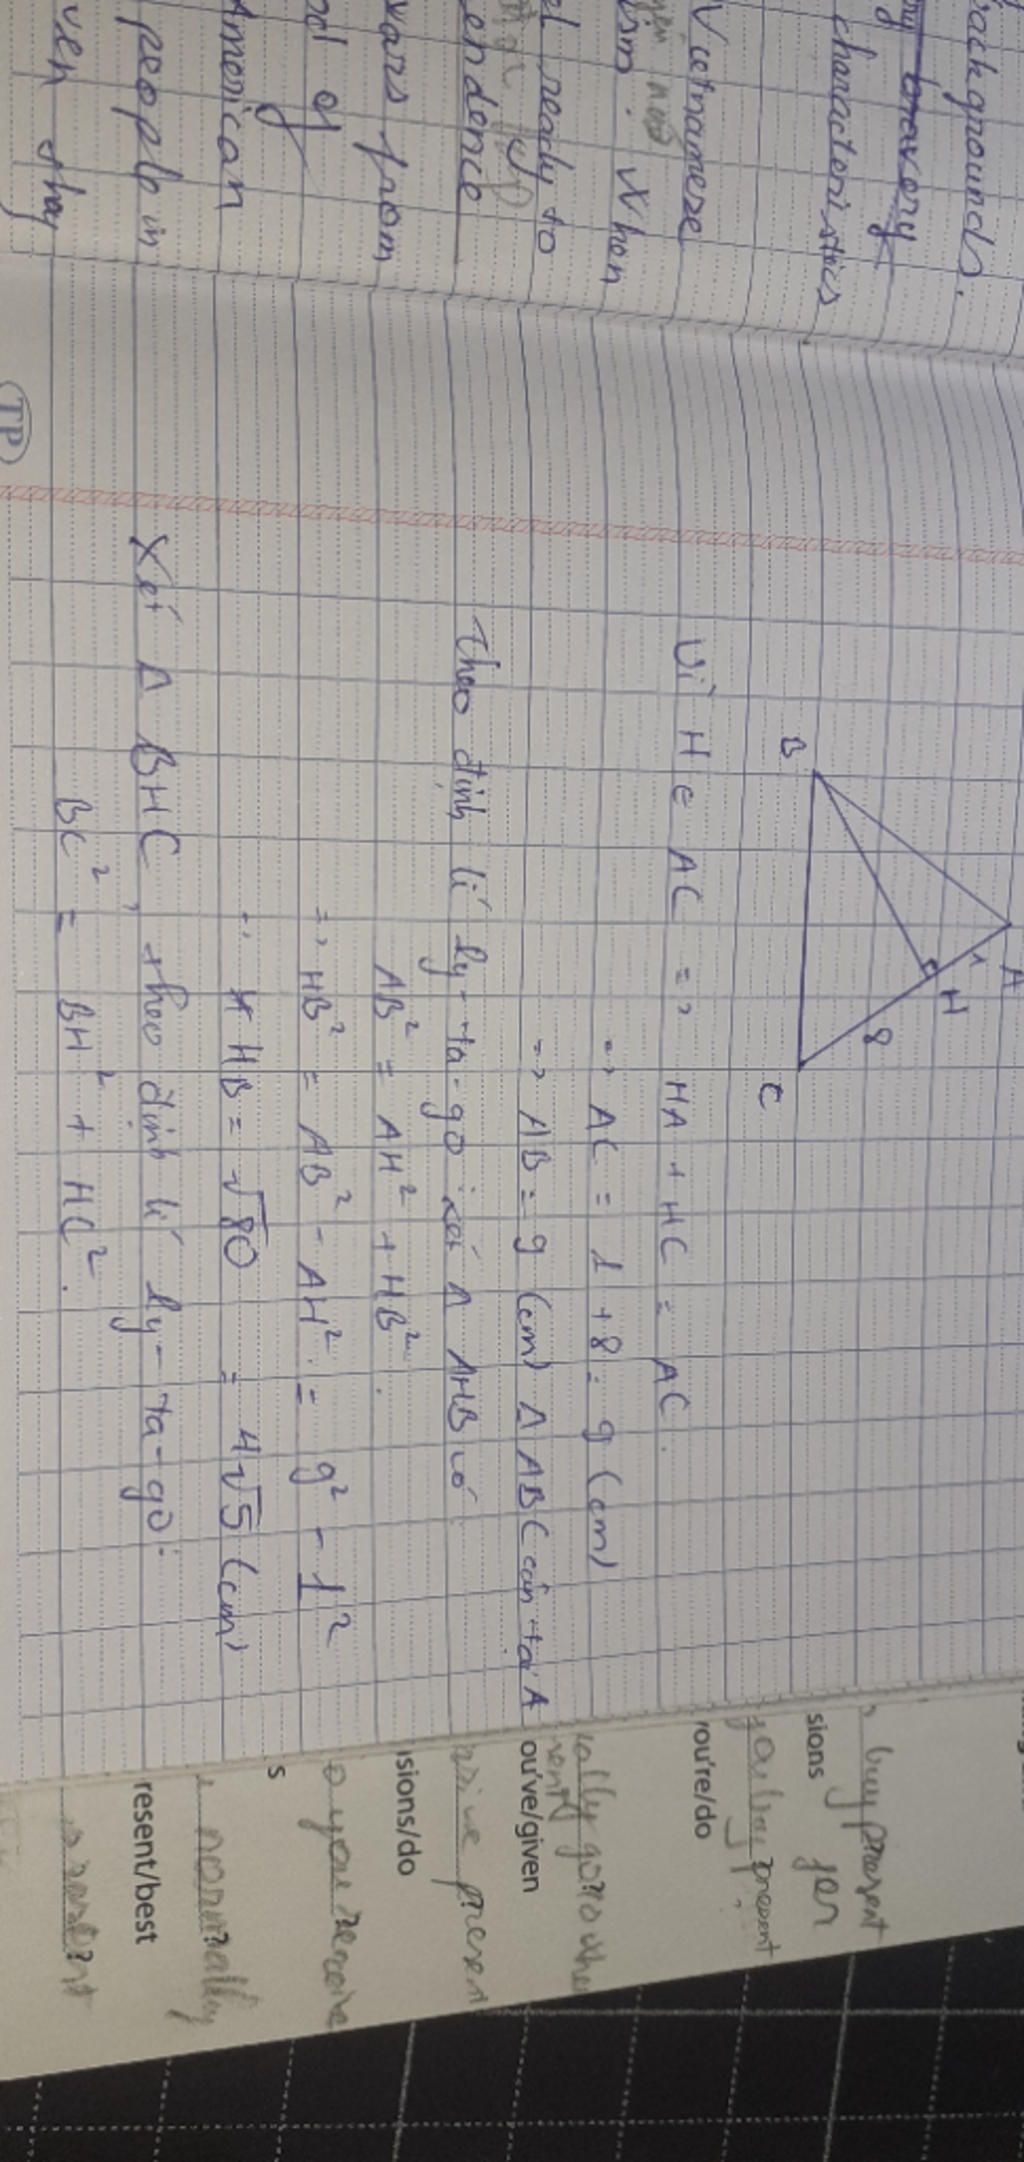 back grounds.
bravery
characteristics
Vietnamese
ism. When
el ready to
endence
wars from
od of
American
people in
ven they
TP
A
1
H
8
B
C
Vì H ∈ AC => HA + HC = AC.
=> AC = 1 + 8 = 9 (cm)
=> AB = 9 (cm) Δ ABC cân tại A
Theo định lí Py-ta-go xét Δ AHB có
AB² = AH² + HB².
=> HB² = AB² - AH² = 9² - 1²
HB = √80 = 4√5 (cm)
Xét Δ BHC, theo định lí Py-ta-go:
BC² = BH² + HC².
buy present
sions for
present
you're/do
ally go to whe
ou've/given
present
isions/do
o you receive
s
normally
resent/best